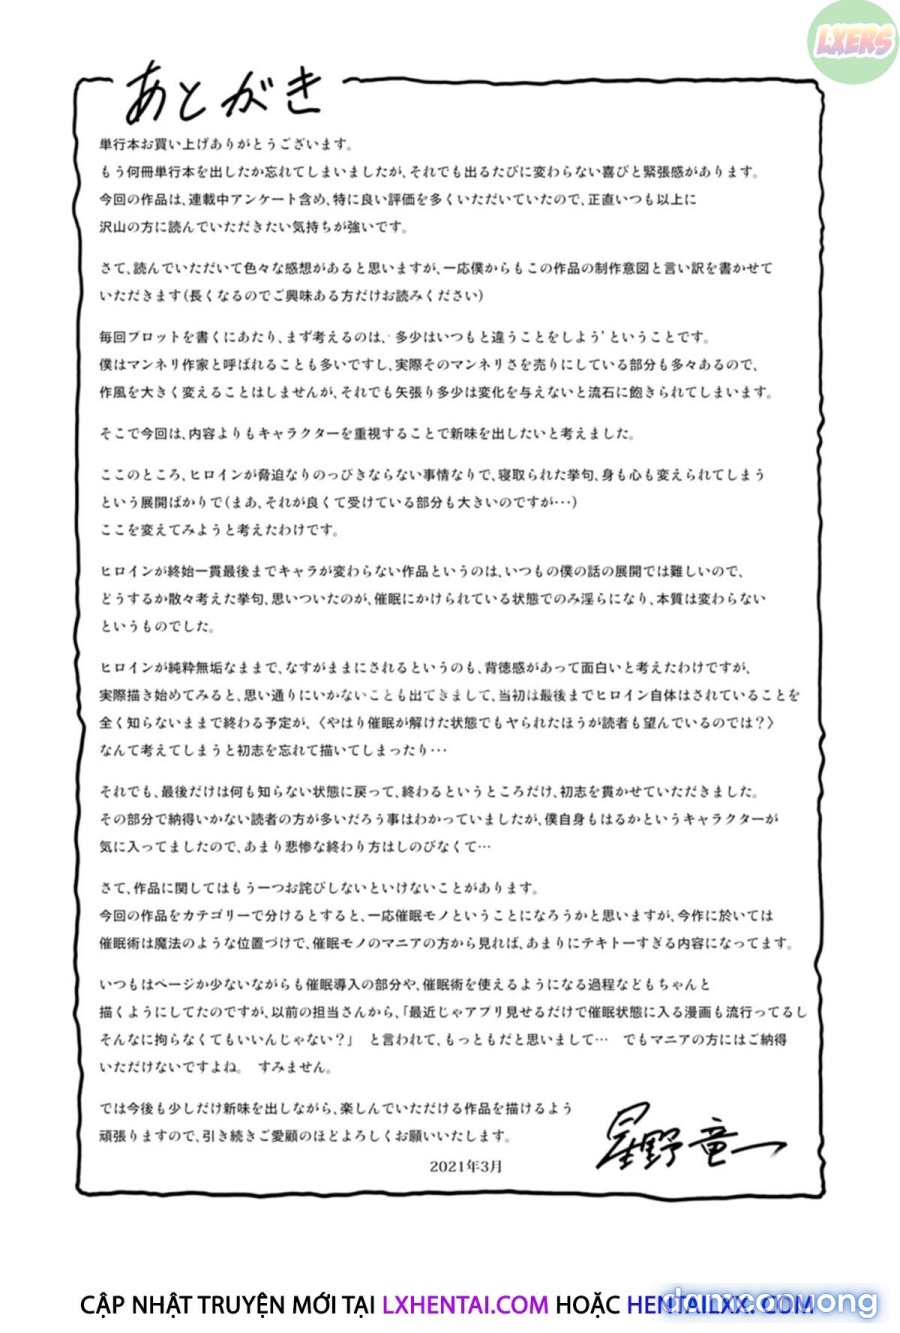 LXERS
あとがき
単行本お買い上げありがとうございます。
もう何冊単行本を出したか忘れてしまいましたが、それでも出るたびに変わらない喜びと緊張感があります。
今回の作品は、連載中アンケート含め、特に良い評価を多くいただいていたので、正直いつも以上に
沢山の方に読んでいただきたい気持ちが強いです。
さて、読んでいただいて色々な感想があると思いますが、一応僕からもこの作品の制作意図と言い訳を書かせて
いただきます(長くなるのでご興味ある方だけお読みください)
毎回プロットを書くにあたり、まず考えるのは、‘多少はいつもと違うことをしよう’ということです。
僕はマンネリ作家と呼ばれることも多いですし、実際そのマンネリさを売りにしている部分も多々あるので、
作風を大きく変えることはしませんが、それでも矢張り多少は変化を与えないと流石に飽きられてしまいます。
そこで今回は、内容よりもキャラクターを重視することで新味を出したいと考えました。
ここのところ、ヒロインが脅迫なりのっぴきならない事情なりで、寝取られた挙句、身も心も変えられてしまう
という展開ばかりで(まあ、それが良くて受けている部分も大きいのですが・・・)
ここを変えてみようと考えたわけです。
ヒロインが終始一貫最後までキャラが変わらない作品というのは、いつもの僕の話の展開では難しいので、
どうするか散々考えた挙句、思いついたのが、催眠にかけられている状態でのみ淫らになり、本質は変わらない
というものでした。
ヒロインが純粋無垢なままで、なすがままにされるというのも、背徳感があって面白いと考えたわけですが、
実際描き始めてみると、思い通りにいかないことも出てきまして、当初は最後までヒロイン自体はされていることを
全く知らないままで終わる予定が、〈やはり催眠が解けた状態でもヤられたほうが読者も望んでいるのでは？〉
なんて考えてしまうと初志を忘れて描いてしまったり・・・
それでも、最後だけは何も知らない状態に戻って、終わるというところだけ、初志を貫かせていただきました。
その部分で納得いかない読者の方が多いだろう事はわかっていましたが、僕自身もはるかというキャラクターが
気に入ってましたので、あまり悲惨な終わり方はしのびなくて…
さて、作品に関してはもう一つお詫びしないといけないことがあります。
今回の作品をカテゴリーで分けるとすると、一応催眠モノということになろうかと思いますが、今作に於いては
催眠術は魔法のような位置づけで、催眠モノのマニアの方から見れば、あまりにテキトーすぎる内容になってます。
いつもはページか少ないながらも催眠導入の部分や、催眠術を使えるようになる過程などもちゃんと
描くようにしてたのですが、以前の担当さんから、「最近じゃアプリ見せるだけで催眠状態に入る漫画も流行ってるし
そんなに拘らなくてもいいんじゃない？」 と言われて、もっともだと思いまして… でもマニアの方にはご納得
いただけないですよね。 すみません。
では今後も少しだけ新味を出しながら、楽しんでいただける作品を描けるよう
頑張りますので、引き続きご愛顧のほどよろしくお願いいたします。
星野竜一
2021年3月
CẬP NHẬT TRUYỆN MỚI TẠI LXHENTAI.COM HOẶC HENTAILXX.COM
damconuong